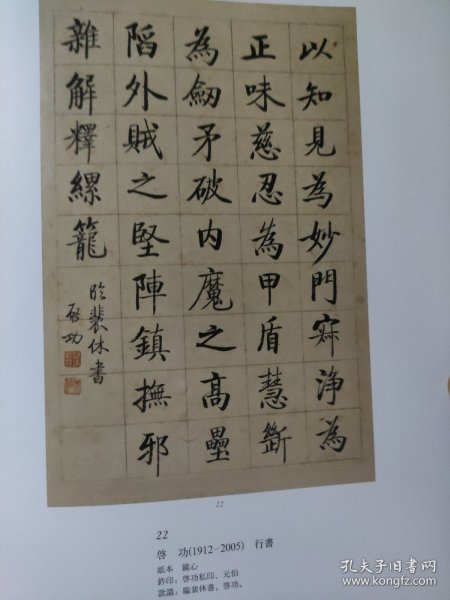 以知見為妙門寂淨為
正味慈忍為甲盾慧斷
為劒矛破内魔之高壘
陷外賊之堅陣鎮撫邪
雜解釋縲籠
臨裴休書
啓功
22
22
啓 功(1912-2005) 行書
紙本 鏡心
鈐印：啓功私印、元伯
款識：臨裴休書。啓功。
孔夫子旧书网